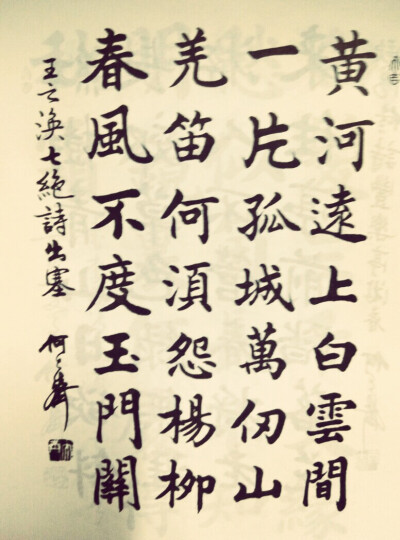 黃河遠上白雲間
一片孤城萬仞山
羌笛何須怨楊柳
春風不度玉門關
王之渙七絕詩出塞